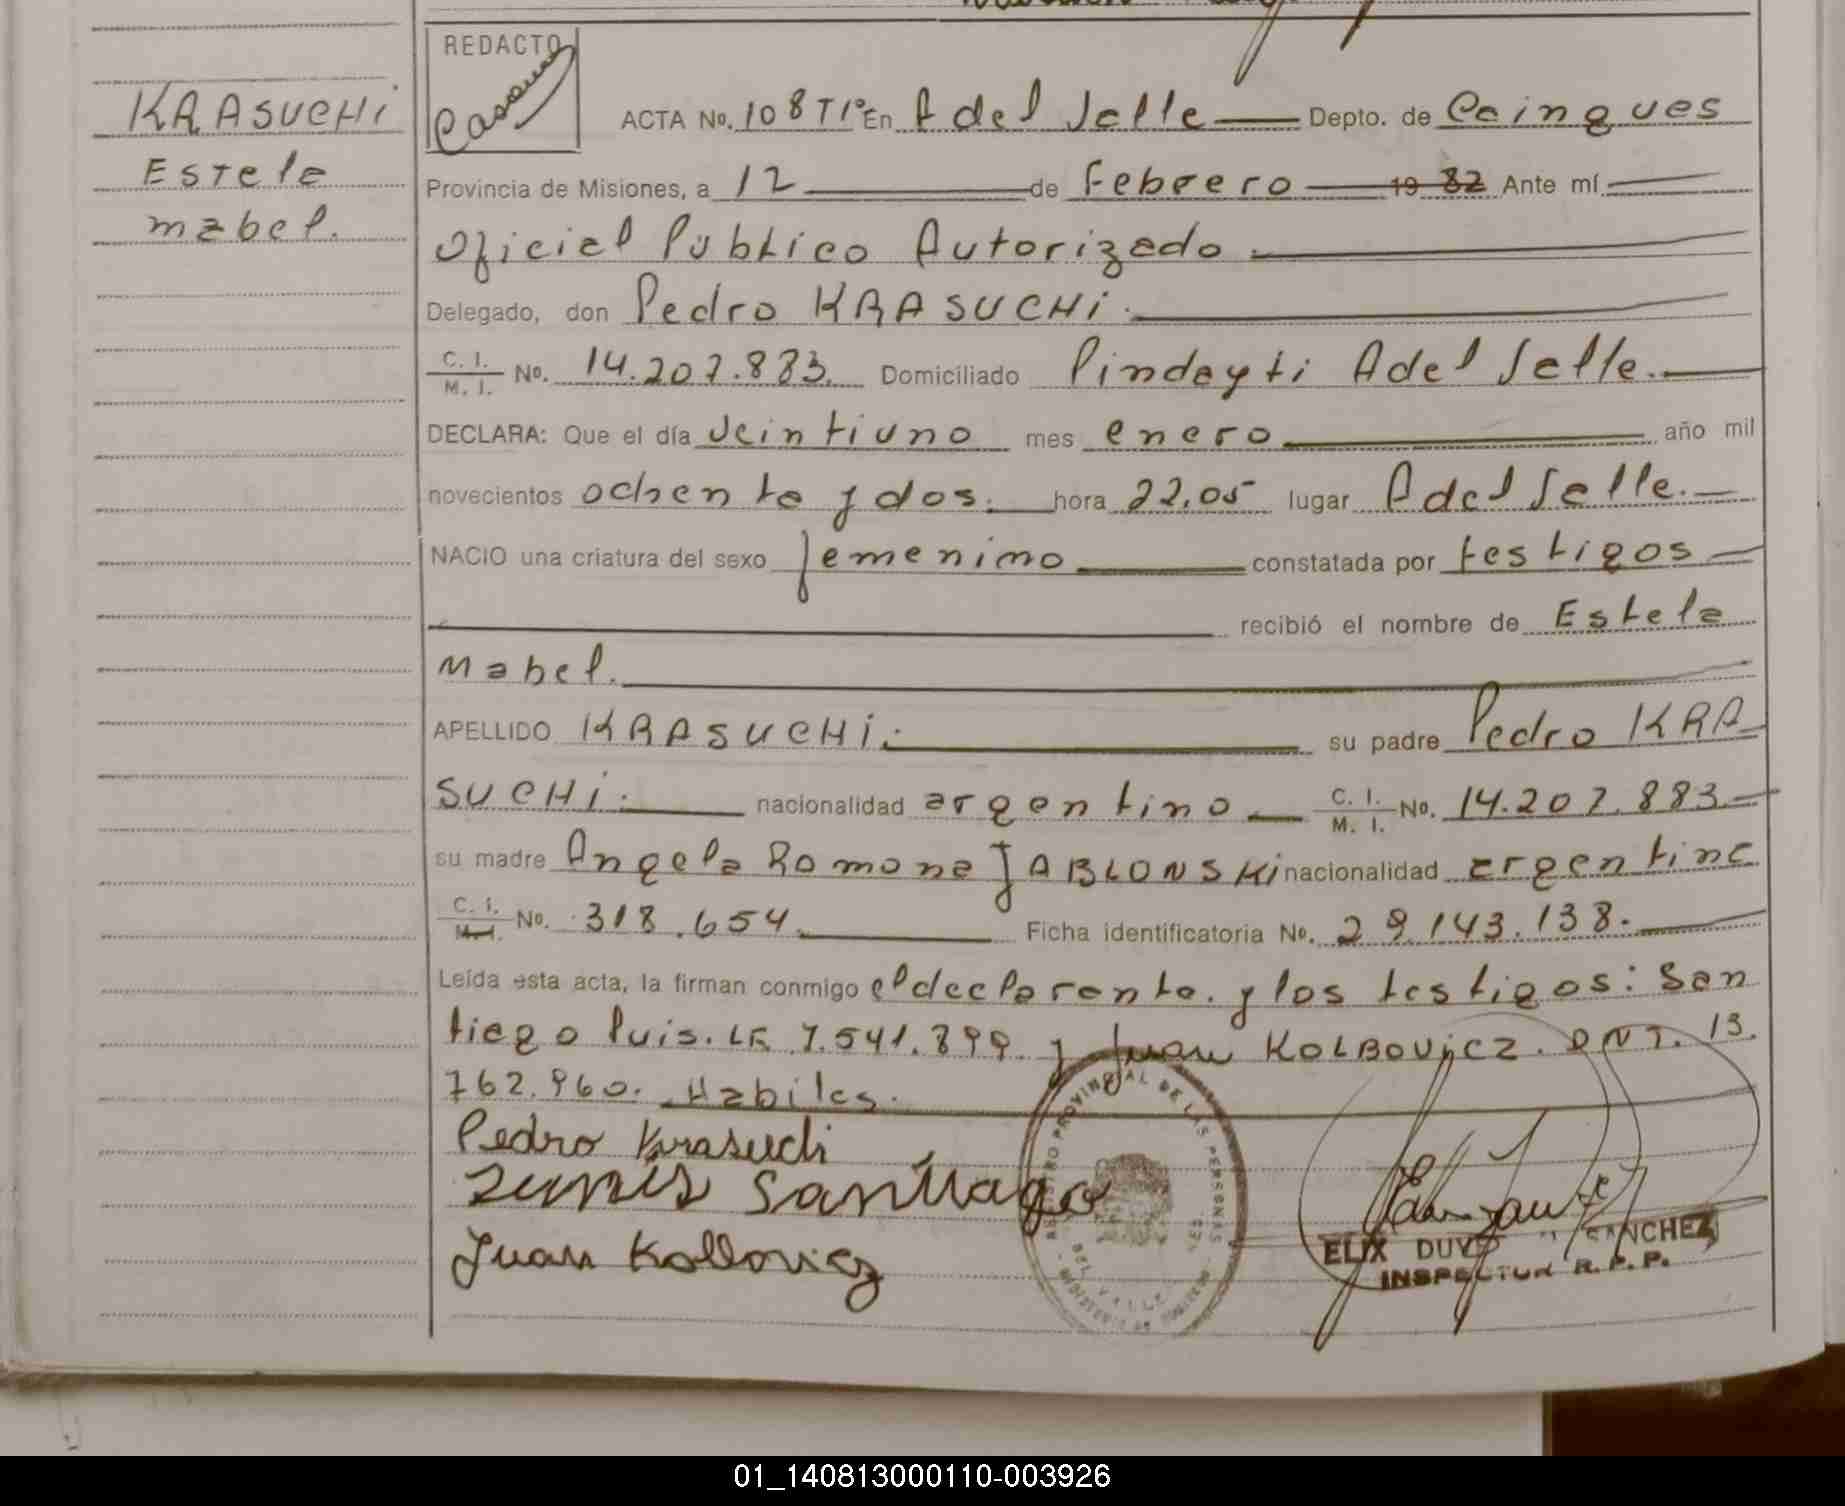 KRASUCHi
Estela
mabel.
REDACTO
ACTA No. 108 T1º En A del Valle Depto. de Cainguas
Provincia de Misiones, a 12 de Febrero 19 82 Ante mí
Oficial Publico Autorizado
Delegado, don Pedro KRASUCHi.
C. I. M. I. No. 14.207.883. Domiciliado Pindayti A del Valle.
DECLARA: Que el día veintiuno mes enero año mil
novecientos ochenta y dos. hora 22,05 lugar A del Valle.
NACIO una criatura del sexo femenino constatada por testigos
recibió el nombre de Estela
Mabel.
APELLIDO KRASUCHi. su padre Pedro KRA
SUCHi. nacionalidad argentino C. I. M. I. No. 14.207.883
su madre Angela Ramona JABLONSKi nacionalidad argentina
C. I. M. I. No. 318.654. Ficha identificatoria No. 29.143.138.
Leída esta acta, la firman conmigo el declarante. y los testigos: San
tiago Luis. LE 7.541.899. y Juan KOLBOVicZ. DNI. 13.
762.960. Habiles.
Pedro Krasuchi
Santiago
Juan Kolbovicz
REGISTRO PROVINCIAL DE LAS PERSONAS
DEL VALLE
ELIX SANCHEZ
INSPECTOR R. P. P.
01_140813000110-003926